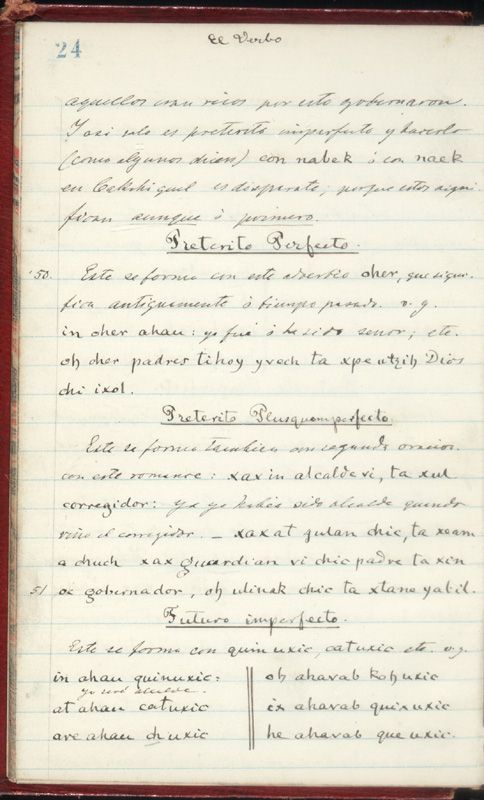 24
El Verbo
aquellos eran ricos por esto gobernaron.
Y asi solo es preterito imperfecto y hacerlo
(como algunos dicen) con nabek ó con naek
en Cakchiquel es disparate; porque estos signi-
fican aunque ó primero.
Preterito Perfecto.
50. Este se forma con este adverbio oher, que signi-
fica antiguamente ó tiempo pasado. v. g.
in oher ahau: yo fui ó he sido señor; etc.
oh oher padres tihoy yvech ta xpe utzih Dios
chi ixol.
Preterito Plusquamperfecto
Este se forma tambien con segunda oracion
con este romance: xax in alcalde vi, ta xul
corregidor: ya yo habia sido alcalde quando
vino el corregidor. – xax at gulan chic, ta xeam
a chuch xax guardian vi chic padre ta xin
51 oc gobernador, oh ulinak chic ta xtane yabil.
Futuro imperfecto.
Este se forma con quin uxic, catuxic etc. v.g.
in ahau quinuxic:
yo seré alcalde.
at ahau catuxic
are ahau chuxic
oh ahavab kohuxic
ix ahavab quixuxic
he ahavab que uxic.